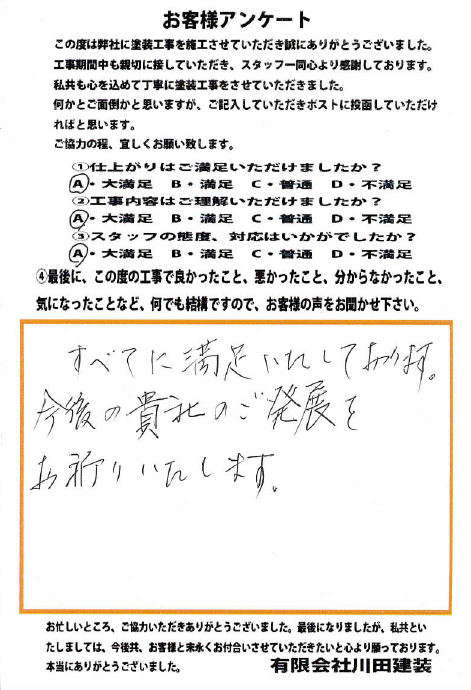 お客様アンケート
この度は弊社に塗装工事を施工させていただき誠にありがとうございました。
工事期間中も親切に接していただき、スタッフ一同心より感謝しております。
私共も心を込めて丁寧に塗装工事をさせていただきました。
何かとご面倒かと思いますが、ご記入していただきポストに投函していただけ
ればと思います。
ご協力の程、宜しくお願い致します。
①仕上がりはご満足いただけましたか？
A・大満足 B・満足 C・普通 D・不満足
②工事内容はご理解いただけましたか？
A・大満足 B・満足 C・普通 D・不満足
③スタッフの態度、対応はいかがでしたか？
A・大満足 B・満足 C・普通 D・不満足
④最後に、この度の工事で良かったこと、悪かったこと、分からなかったこと、
気になったことなど、何でも結構ですので、お客様の声をお聞かせ下さい。
すべてに満足いたしております。
今後の貴社のご発展を
お祈りいたします。
お忙しいところ、ご協力いただきありがとうございました。最後になりましたが、私共とい
たしましては、今後共、お客様と末永くお付合いさせていただきたいと心より願っております。
本当にありがとうございました。 有限会社川田建装